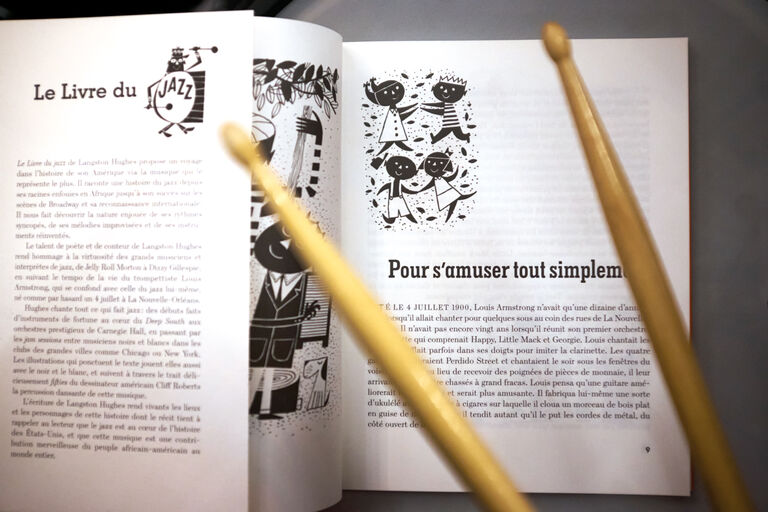 Le Livre du
JAZZ
Le Livre du jazz de Langston Hughes propose un voyage
dans l'histoire de son Amérique via la musique qui le
représente le plus. Il raconte une histoire du jazz depuis
ses racines enfouies en Afrique jusqu'à son succès sur les
scènes de Broadway et sa reconnaissance internationale.
Il nous fait découvrir la nature enjouée de ses rythmes
syncopés, de ses mélodies improvisées et de ses instru-
ments réinventés.
Le talent de poète et de conteur de Langston Hughes
rend hommage à la virtuosité des grands musiciens et
interprètes de jazz, de Jelly Roll Morton à Dizzy Gillespie,
en suivant le tempo de la vie du trompettiste Louis
Armstrong, qui se confond avec celle du jazz lui-même,
né comme par hasard un 4 juillet à La Nouvelle-Orléans.
Hughes chante tout ce qui fait jazz : des débuts faits
d'instruments de fortune au cœur du Deep South aux
orchestres prestigieux de Carnegie Hall, en passant par
les jam sessions entre musiciens noirs et blancs dans les
clubs des grandes villes comme Chicago ou New York.
Les illustrations qui ponctuent le texte jouent elles aussi
avec le noir et le blanc, et suivent à travers le trait déli-
cieusement fifties du dessinateur américain Cliff Roberts
la percussion dansante de cette musique.
L'écriture de Langston Hughes rend vivants les lieux
et les personnages de cette histoire dont le récit tient à
rappeler au lecteur que le jazz est au cœur de l'histoire
des États-Unis, et que cette musique est une contri-
bution merveilleuse du peuple africain-américain au
monde entier.
Pour s'amuser tout simplem
É LE 4 JUILLET 1900, Louis Armstrong n'avait qu'une dizaine d'ann
rsqu'il allait chanter pour quelques sous au coin des rues de La Nouvell
Il n'avait pas encore vingt ans lorsqu'il réunit son premier orchestre
te qui comprenait Happy, Little Mack et Georgie. Louis chantait les
lait parfois dans ses doigts pour imiter la clarinette. Les quatre
raient Perdido Street et chantaient le soir sous les fenêtres du
voisi lieu de recevoir des poignées de pièces de monnaie, il leur
arriva re chassés à grand fracas. Louis pensa qu'une guitare amé-
liorerait et serait plus amusante. Il fabriqua lui-même une sorte
d'ukulélé à cigares sur laquelle il cloua un morceau de bois plat
en guise de il tendit autant qu'il le put les cordes de métal, du
côté ouvert de
9